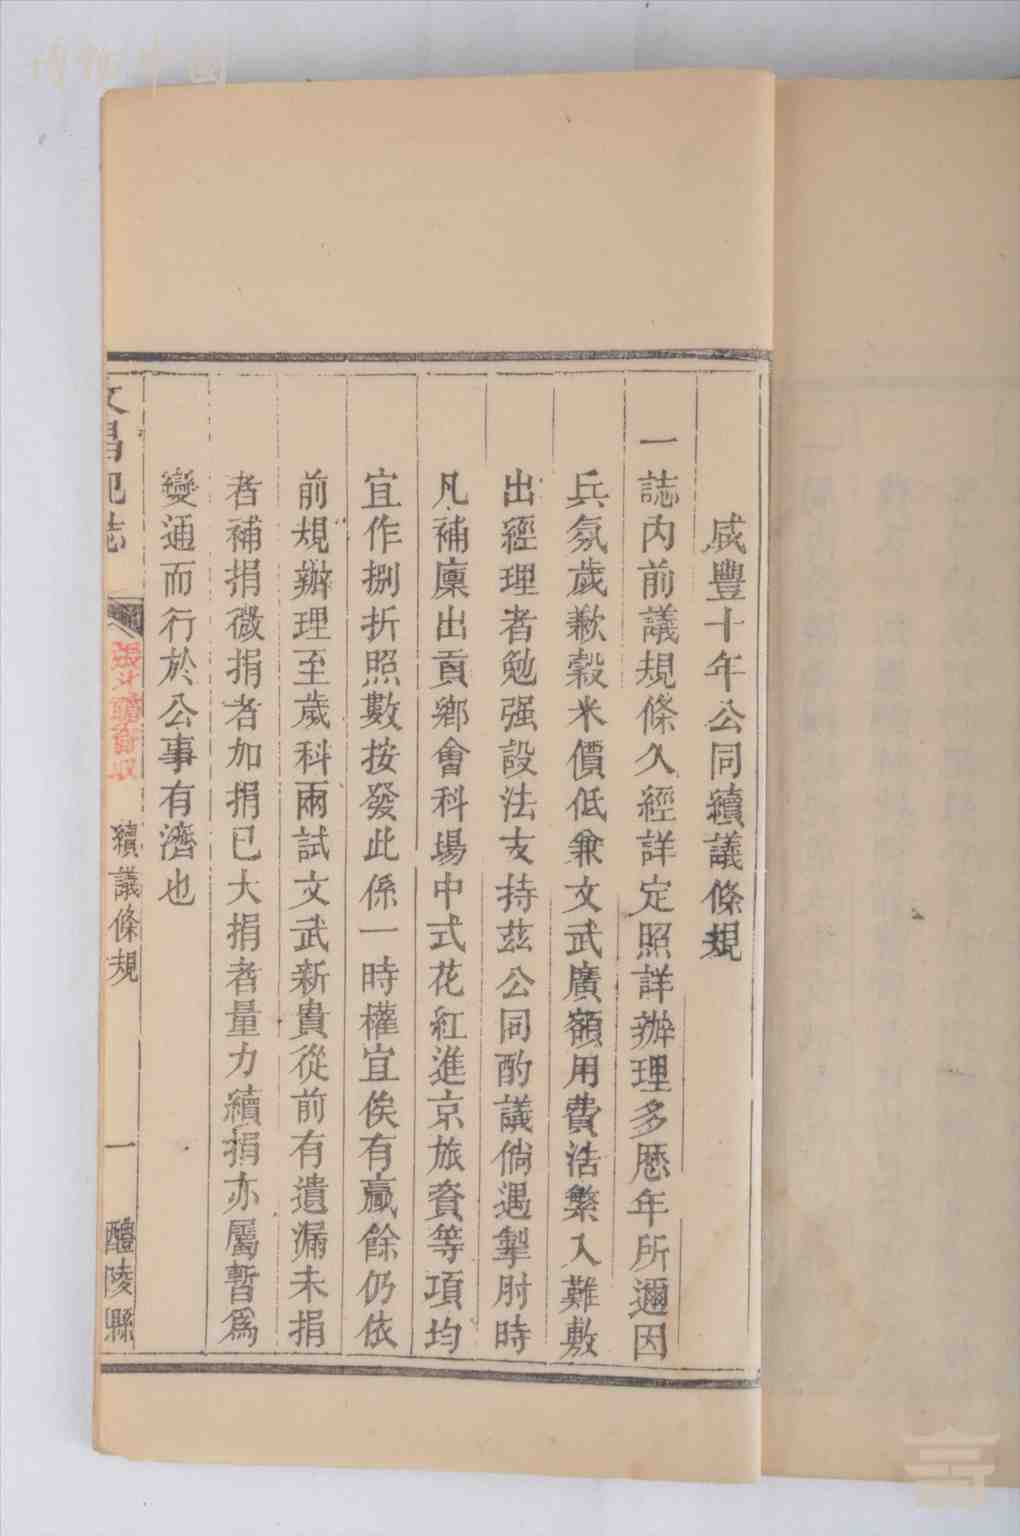 咸豐十年公同續議條規
一誌內前議規條久經詳定照詳辦理多歷年所邇因
兵氛歲歉穀米價低兼文武廣額用費浩繁入難敷
出經理者勉强設法支持茲公同酌議倘遇掣肘時
凡補廩出貢鄉會科場中式花紅進京旅資等項均
宜作捌折照數按發此係一時權宜俟有贏餘仍依
前規辦理至歲科兩試文武新貴從前有遺漏未捐
者補捐微捐者加捐已大捐者量力續捐亦屬暫爲
變通而行於公事有濟也
文昌祀誌
續議條規
一
醴陵縣
博物中國